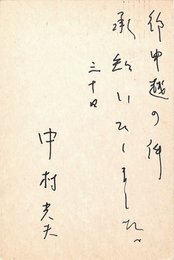 御申越の件
承知いたしました。
三十日
中村光夫